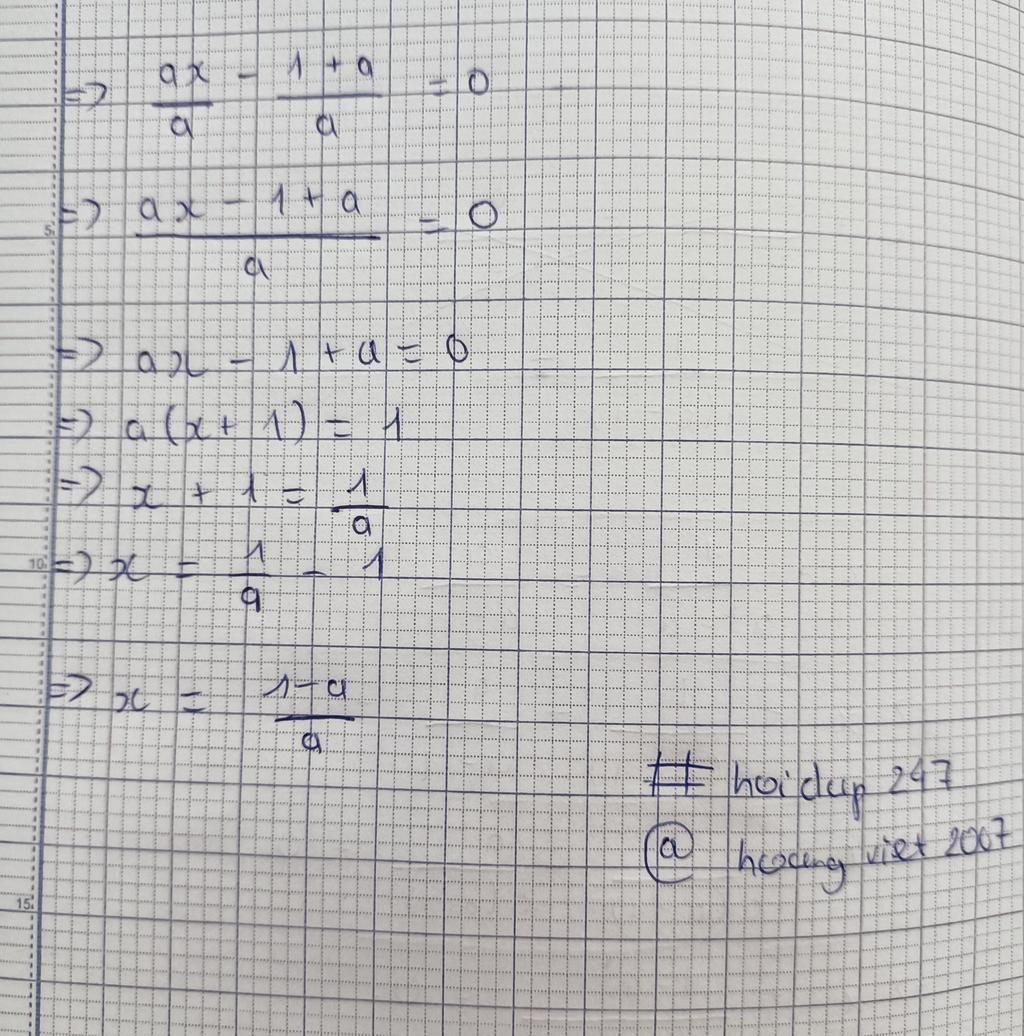 => ax/a - (1 + a)/a = 0
=> (ax - 1 + a)/a = 0
5
=> ax - 1 + a = 0
=> a(x + 1) = 1
=> x + 1 = 1/a
10 => x = 1/a - 1
=> x = (1 - a)/a
# hoidap 247
@ hoang viet 2007
15